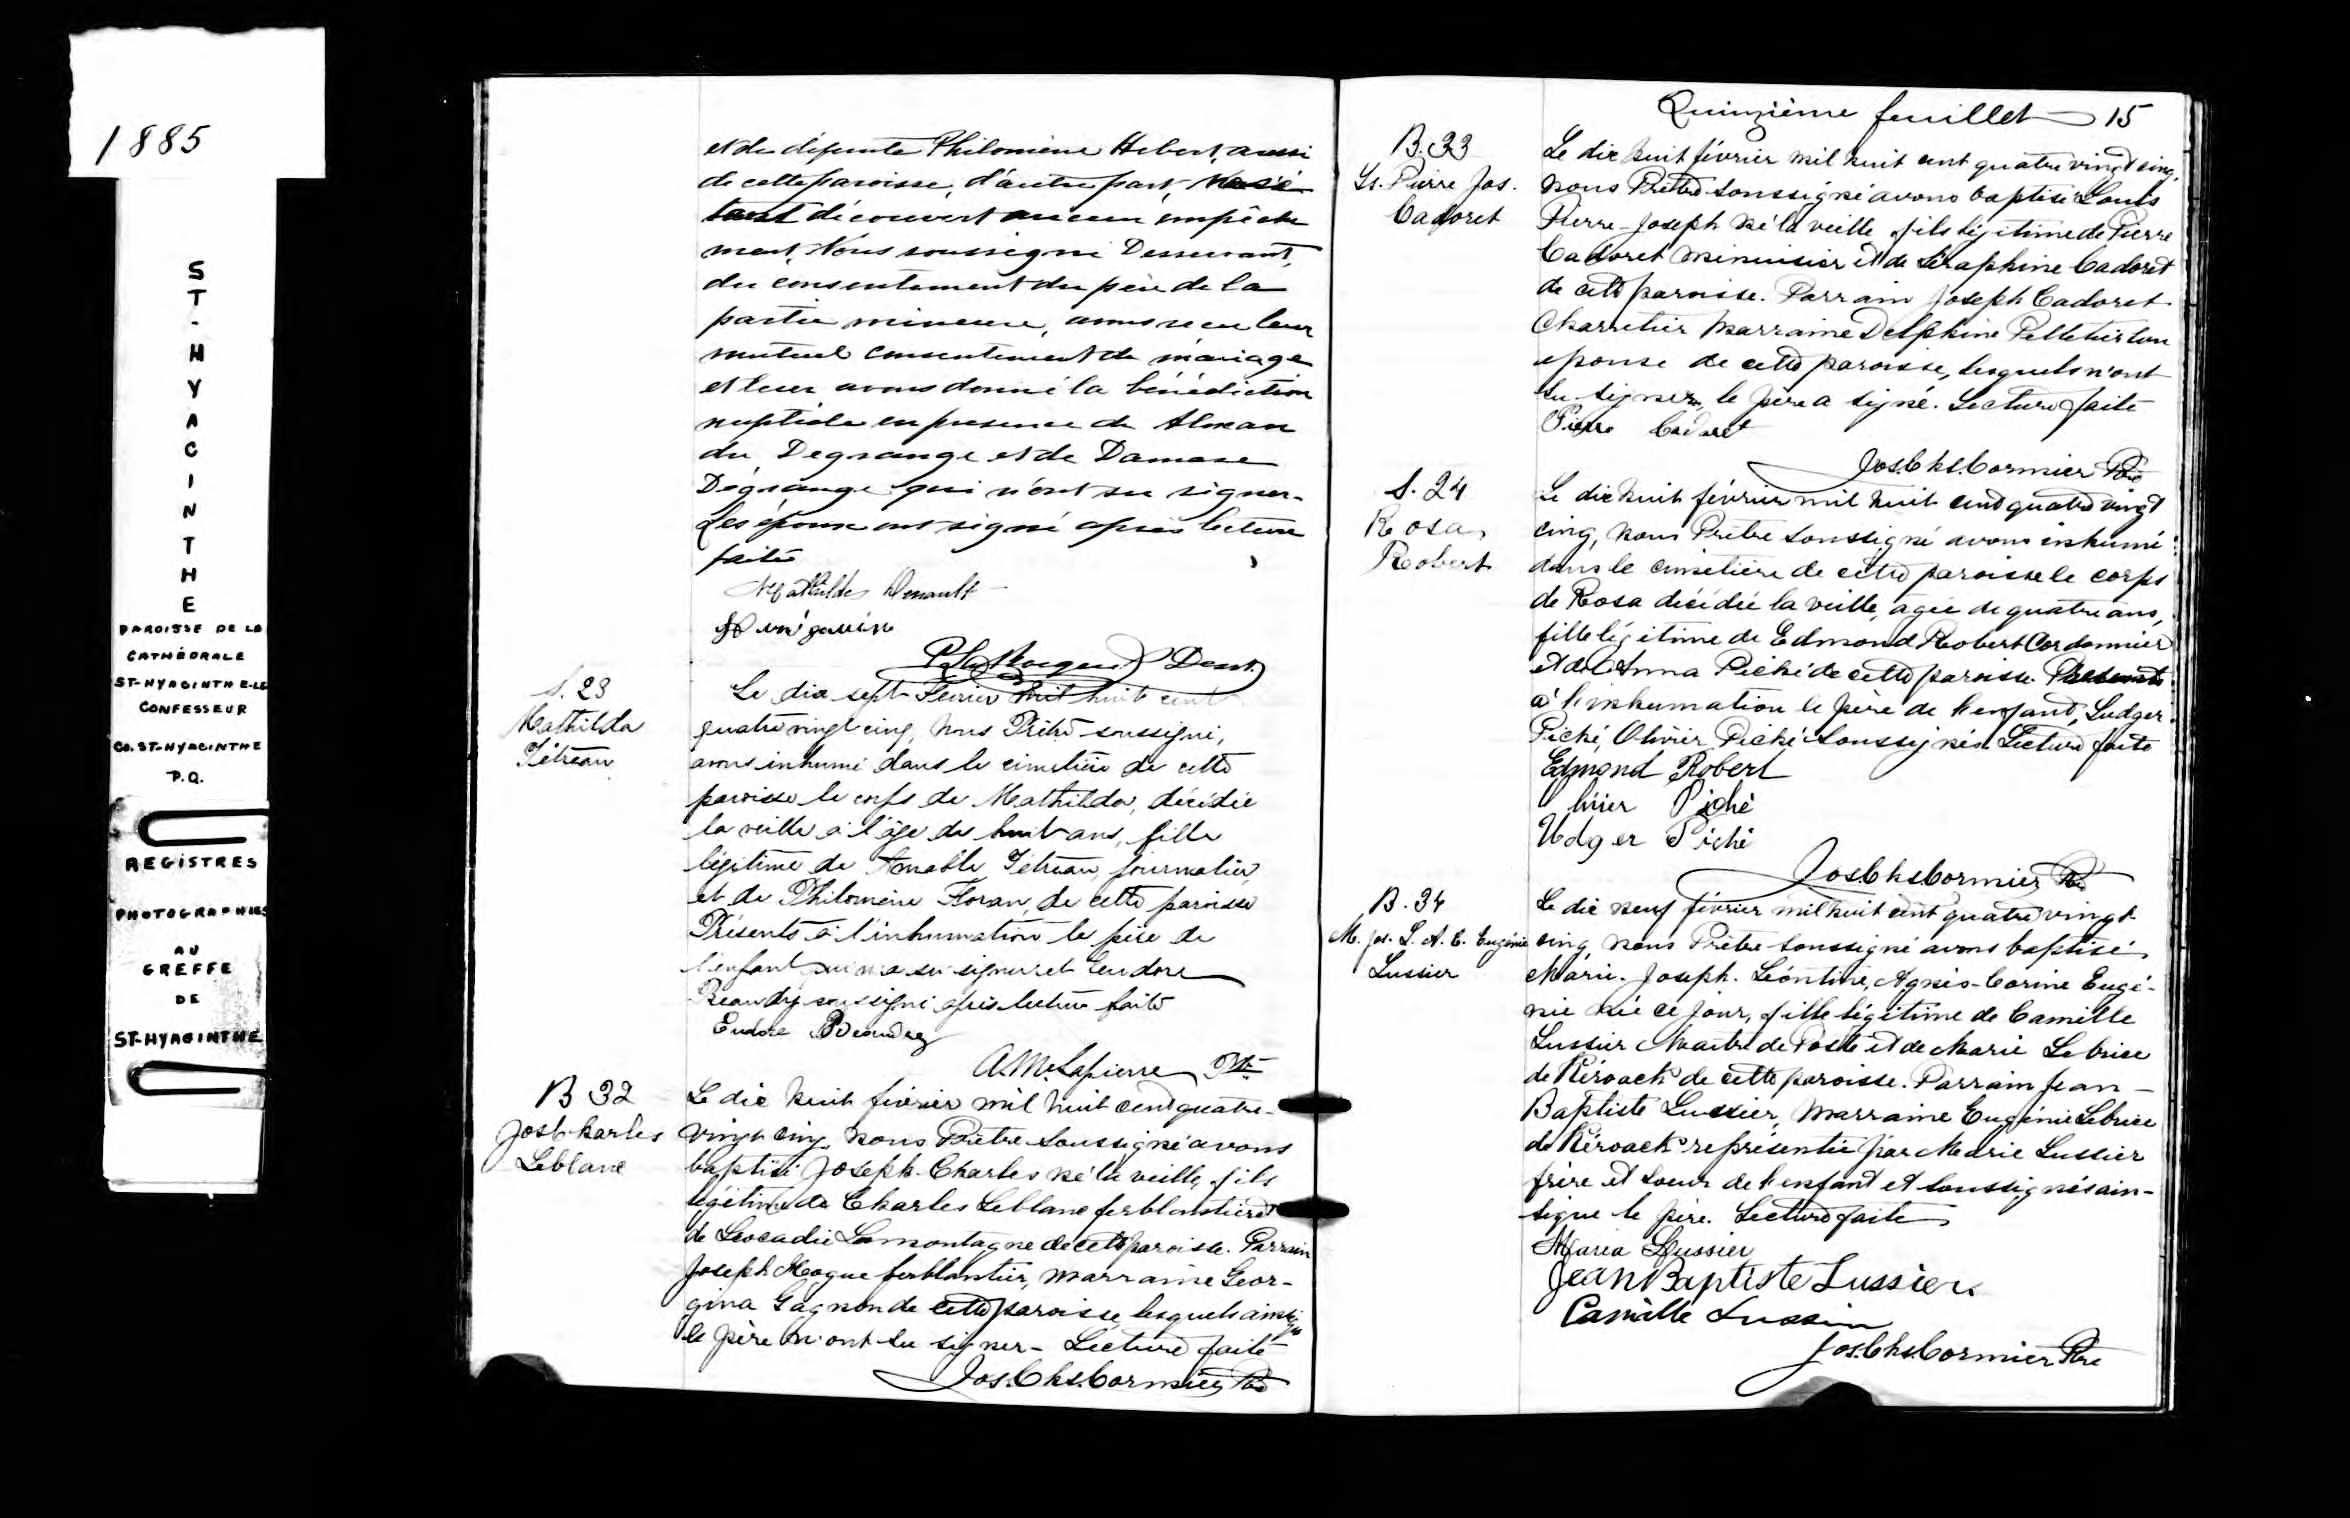 1885
ST-HYACINTHE
PAROISSE DE LA
CATHÉDRALE
ST-HYACINTHE-LE
CONFESSEUR
CO. ST-HYACINTHE
P.Q.
REGISTRES
PHOTOGRAPHIES
AU
GREFFE
DE
ST-HYACINTHE
et de défunte Philomène Hebert, aussi
de cette paroisse, d'autre part, ne s'é
tant découvert aucun empêche
ment, Nous soussigné Desservant,
du consentement du père de la
partie mineure, avons reçu leur
mutuel consentement de mariage
et leur avons donné la bénédiction
nuptiale en presence de
du Degrange et de Damase
Dégrange qui n'ont su signer.
Les époux ont signé après lecture
faite
Mathilde
Desst.
S. 23
Mathilda
Tétreau
Le dix sept Fevrier mil huit cent
quatre vingt cinq, nous Prêtre soussigné,
avons inhumé dans le cimetière de cette
paroisse le corps de Mathilda, décédée
la veille à l'âge de huit ans, fille
légitime de Amable Tétreau, journalier,
et de Philomène Floran, de cette paroisse
Présents à l'inhumation le père de
l'enfant qui n'a su signer et Eudore
Beaudry soussigné après lecture faite
Eudore Beaudry
A. M. Lapierre Ptre
B 32
Jos Charles
Leblanc
Le dix huit février mil huit cent quatre-
vingt cinq, nous Prêtre soussigné avons
baptisé Joseph-Charles né la veille, fils
légitime de Charles Leblanc ferblantier et
de Leocadie Lamontagne de cette paroisse. Parrain
Joseph Hogue ferblantier, marraine Geor-
gina Gagnon de cette paroisse, lesquels ainsi que
le père n'ont su signer - Lecture faite
Jos. Chs. Cormier Ptre
Quinzième feuillet 15
B. 33
Ls. Pierre Jos.
Cadoret
Le dix huit février mil huit cent quatre vingt cinq,
nous Prêtre soussigné avons baptisé Louis
Pierre-Joseph né la veille, fils légitime de Pierre
Cadoret menuisier et de Séraphine Cadoret
de cette paroisse. Parrain Joseph Cadoret
Charretier Marraine Delphine Pelletier son
epouse de cette paroisse, lesquels n'ont
su signer, le père a signé. Lecture faite
Pierre Cadoret
Jos. Chs. Cormier Ptre
S. 24
Rosa
Robert
Le dix huit février mil huit cent quatre vingt
cinq, nous Prêtre soussigné avons inhumé
dans le cimetière de cette paroisse le corps
de Rosa décédée la veille, agée de quatre ans,
fille légitime de Edmond Robert Cordonnier
et de Anna Piché de cette paroisse. Présents
à l'inhumation le père de l'enfant, Ludger
Piché, Olivier Piché soussignés. Lecture faite
Edmond Robert
livier Piché
Udger Piché
Jos. Chs. Cormier Ptre
B. 34
M. Jos. L. A. C. Eugénie
Lussier
Le dix neuf février mil huit cent quatre vingt
cinq, nous Prêtre soussigné avons baptisé
Marie-Joseph-Léontine, Agnès-Corine Eugé-
nie née ce jour, fille légitime de Camille
Lussier Maitre de Poste et de Marie Le brice
de Kéroack de cette paroisse. Parrain Jean-
Baptiste Lussier, Marraine Eugénie Lebrice
de Kéroack représentée par Marie Lussier
frère et soeur de l'enfant et soussignés ain-
sique le père. Lecture faite
Maria Lussier
Jean Baptiste Lussier.
Camille Lussier
Jos. Chs. Cormier Ptre